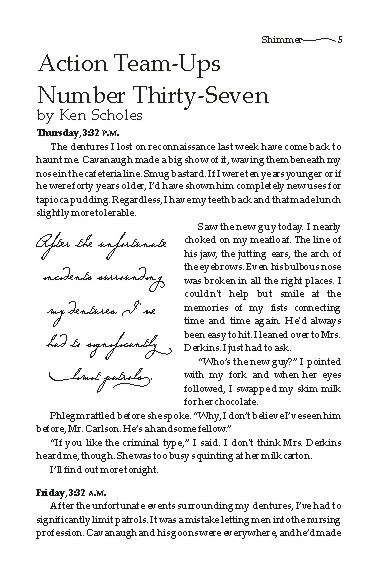 Shimmer 5
Action Team-Ups
Number Thirty-Seven
by Ken Scholes
Thursday, 3:32 P.M.
The dentures I lost on reconnaissance last week have come back to
haunt me. Cavanaugh made a big show of it, waving them beneath my
nose in the cafeteria line. Smug bastard. If I were ten years younger or if
he were forty years older, I'd have shown him completely new uses for
tapioca pudding. Regardless, I have my teeth back and that made lunch
slightly more tolerable.
After the unfortunate
incidents surrounding
my dentures I've
had to significantly
limit patrols.
Saw the new guy today. I nearly
choked on my meatloaf. The line of
his jaw, the jutting ears, the arch of
the eyebrows. Even his bulbous nose
was broken in all the right places. I
couldn't help but smile at the
memories of my fists connecting
time and time again. He'd always
been easy to hit. I leaned over to Mrs.
Derkins. I just had to ask.
"Who's the new guy?" I pointed
with my fork and when her eyes
followed, I swapped my skim milk
for her chocolate.
Phlegm rattled before she spoke. "Why, I don't believe I've seen him
before, Mr. Carlson. He's a handsome fellow."
"If you like the criminal type," I said. I don't think Mrs. Derkins
heard me, though. She was too busy squinting at her milk carton.
I'll find out more tonight.
Friday, 3:32 A.M.
After the unfortunate events surrounding my dentures, I've had to
significantly limit patrols. It was a mistake letting men into the nursing
profession. Cavanaugh and his goons were everywhere, and he'd made